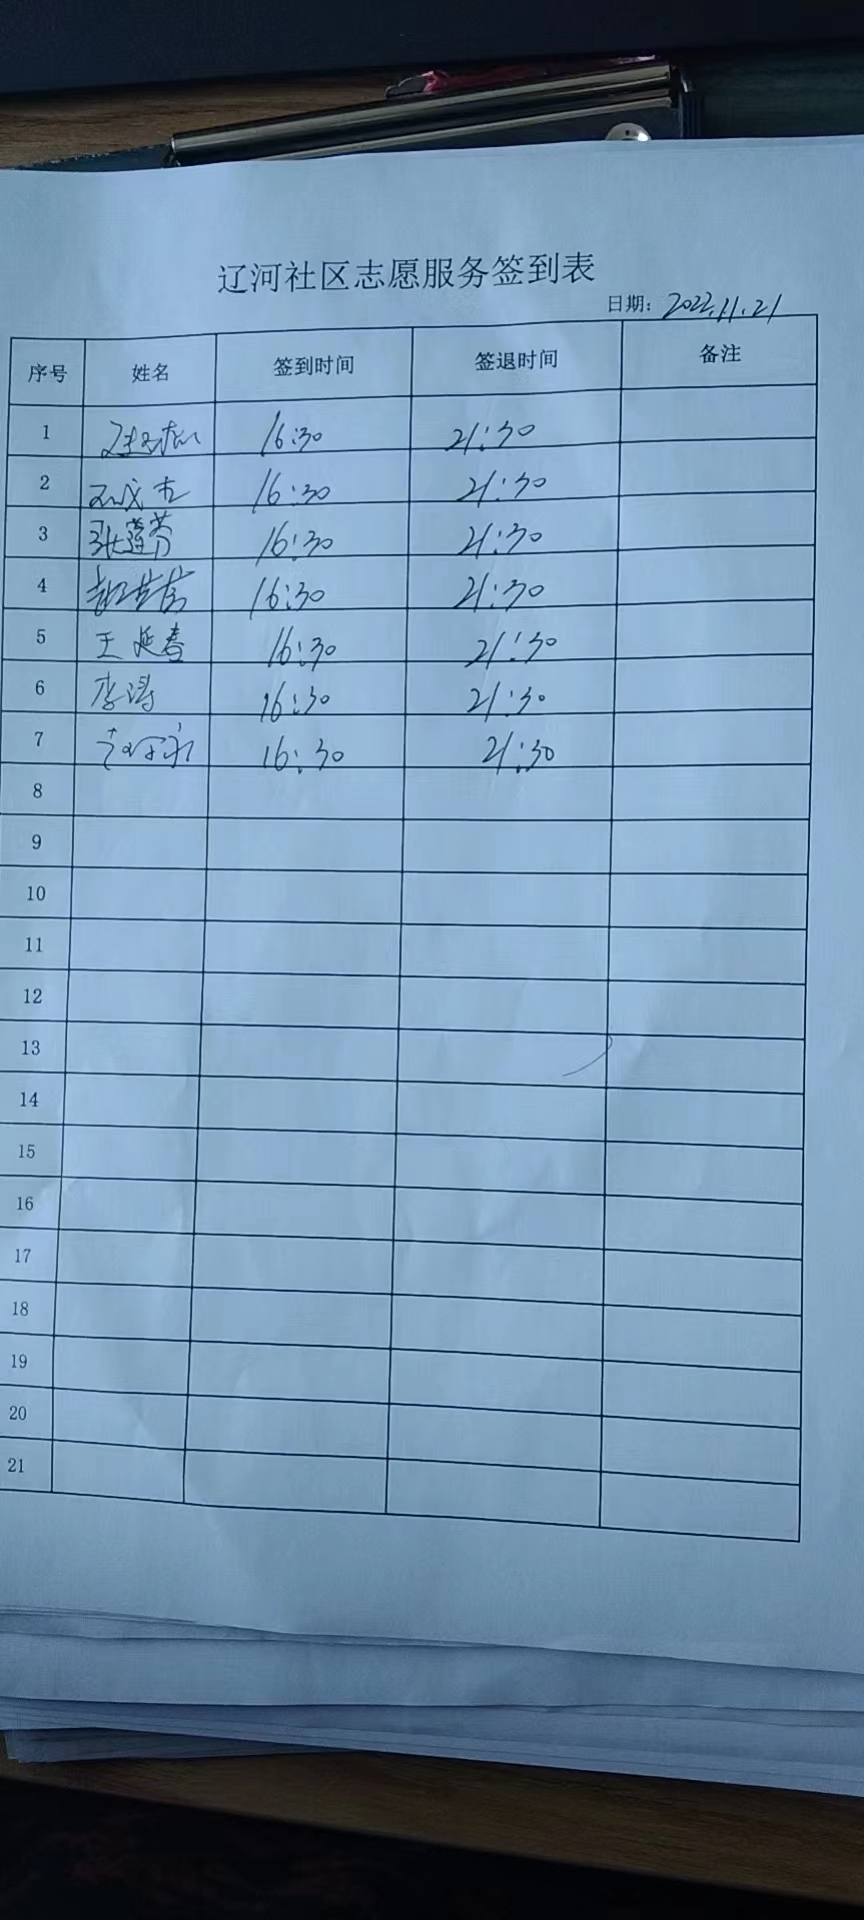 辽河社区志愿服务签到表
日期: 2022.11.21
序号 姓名 签到时间 签退时间 备注
1 16:30 21:30
2 16:30 21:30
3 张莲芳 16:30 21:30
4 16:30 21:30
5 王延春 16:30 21:30
6 李涛 16:30 21:30
7 16:30 21:30
8
9
10
11
12
13
14
15
16
17
18
19
20
21